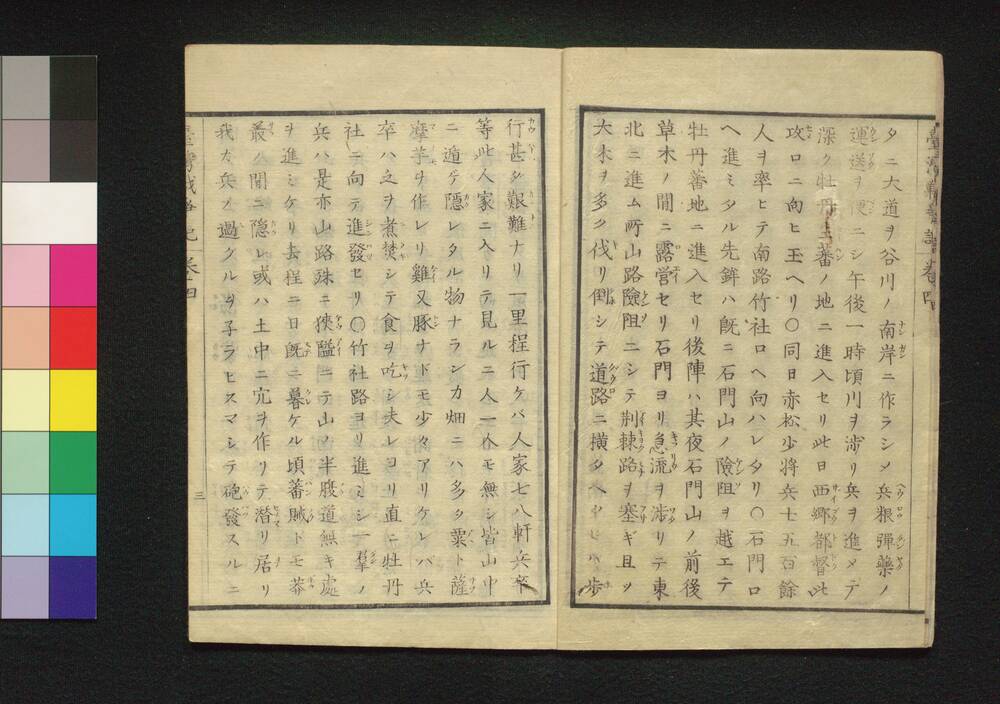 タニ大道ヲ谷川ノ南岸ニ作ラシメ兵粮彈藥ノ
運送ヲ便ニシ午後一時頃川ヲ渉リ兵ヲ進メテ
深ク牡丹生蕃ノ地ニ進入セリ此日西郷都督此
攻口ニ向ヒ玉ヘリ〇同日赤松少将兵士五百餘
人ヲ率ヒテ南路竹社口ヘ向ハレタリ〇石門口
ヘ進ミタル先鋒ハ既ニ石門山ノ險阻ヲ越エテ
牡丹蕃地ニ進入セリ後陣ハ其夜石門山ノ前後
草木ノ間ニ露営セリ石門ヨリ急流ヲ渉リテ東
北ニ進ム所山路險阻ニシテ荆棘路ヲ塞ギ且ツ
大木ヲ多ク伐リ倒シテ道路ニ横タヘ歩
行甚タ艱難ナリ一里程行ケバ人家七八軒兵卒
等此人家ニ入リテ見ルニ人一个モ無シ皆山中
ニ遁テ隱レタル物ナランカ畑ニハ多ク粟ト薩
摩芋ヲ作レリ雞又豚ナドモ少々アリケレバ兵
卒ハ之ヲ煮焚シテ食ヲ吃シ夫レヨリ直ニ牡丹
社ニ向テ進發セリ〇竹社路ヨリ進ミシ一羣ノ
兵ハ是亦山路殊ニ狹隘ニテ山ノ半腹道無キ處
ヲ進ミケリ去程ニ日既ニ暮ケル頃蕃賊ドモ莽
叢ノ間ニ隱レ或ハ土中ニ穴ヲ作リテ潜リ居リ
我カ兵ノ過グルヲ子ラヒスマシテ砲發スルニ
三